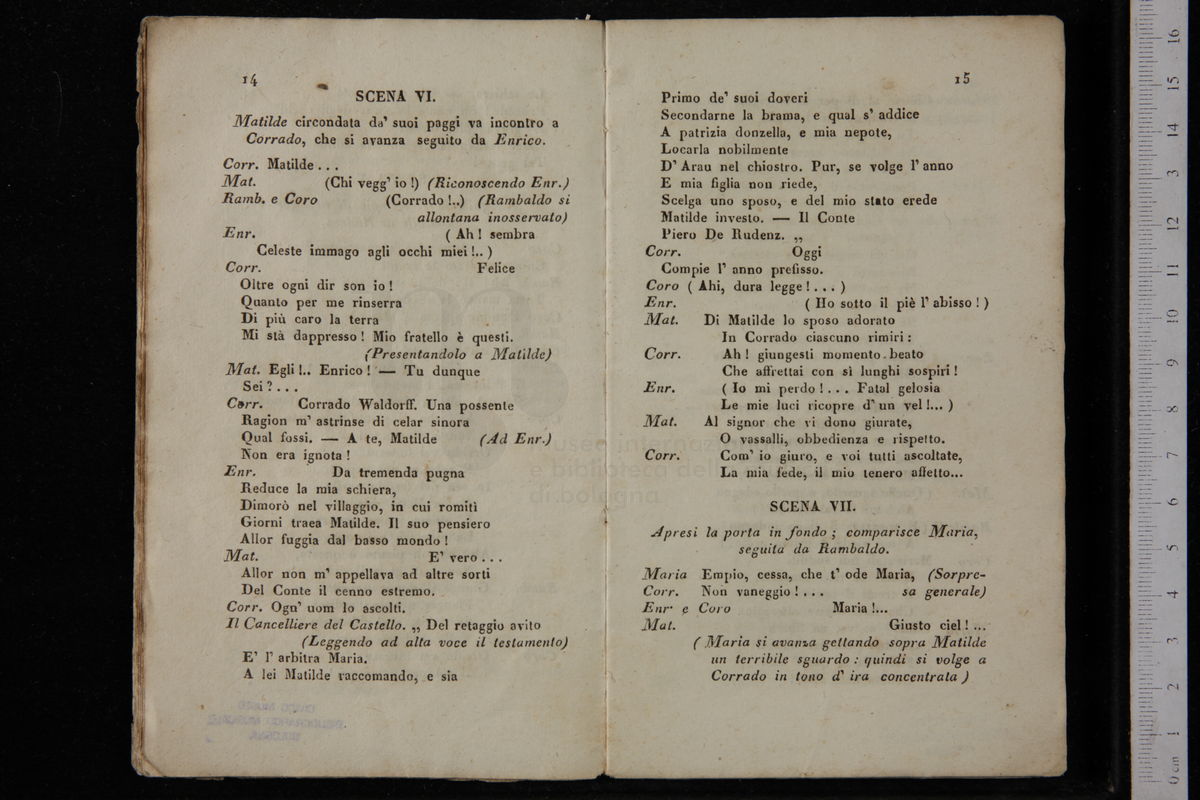 14
SCENA VI.
Matilde circondata da' suoi paggi va incontro a
Corrado, che si avanza seguito da Enrico.
Corr. Matilde . . .
Mat. (Chi vegg' io !) (Riconoscendo Enr.)
Ramb. e Coro (Corrado !..) (Rambaldo si
allontana inosservato)
Enr. ( Ah ! sembra
Celeste immago agli occhi miei !.. )
Corr. Felice
Oltre ogni dir son io !
Quanto per me rinserra
Di più caro la terra
Mi stà dappresso ! Mio fratello è questi.
(Presentandolo a Matilde)
Mat. Egli !.. Enrico ! — Tu dunque
Sei ? . . .
Corr. Corrado Waldorff. Una possente
Ragion m' astrinse di celar sinora
Qual fossi. — A te, Matilde (Ad Enr.)
Non era ignota !
Enr. Da tremenda pugna
Reduce la mia schiera,
Dimorò nel villaggio, in cui romiti
Giorni traea Matilde. Il suo pensiero
Allor fuggia dal basso mondo !
Mat. E' vero . . .
Allor non m' appellava ad altre sorti
Del Conte il cenno estremo.
Corr. Ogn' uom lo ascolti.
Il Cancelliere del Castello. „ Del retaggio avito
(Leggendo ad alta voce il testamento)
E' l' arbitra Maria.
A lei Matilde raccomando, e sia
15
Primo de' suoi doveri
Secondarne la brama, e qual s' addice
A patrizia donzella, e mia nepote,
Locarla nobilmente
D' Arau nel chiostro. Pur, se volge l' anno
E mia figlia non riede,
Scelga uno sposo, e del mio stato erede
Matilde investo. — Il Conte
Piero De Rudenz. „
Corr. Oggi
Compie l' anno prefisso.
Coro ( Ahi, dura legge ! . . . )
Enr. ( Ho sotto il piè l' abisso ! )
Mat. Di Matilde lo sposo adorato
In Corrado ciascuno rimiri :
Corr. Ah ! giungesti momento beato
Che affrettai con sì lunghi sospiri !
Enr. ( Io mi perdo ! . . . Fatal gelosia
Le mie luci ricopre d' un vel !... )
Mat. Al signor che vi dono giurate,
O vassalli, obbedienza e rispetto.
Corr. Com' io giuro, e voi tutti ascoltate,
La mia fede, il mio tenero affetto...
SCENA VII.
Apresi la porta in fondo ; comparisce Maria,
seguita da Rambaldo.
Maria Empio, cessa, che t' ode Maria, (Sorpre-
Corr. Non vaneggio ! . . . sa generale)
Enr. e Coro Maria !...
Mat. Giusto ciel ! ...
( Maria si avanza gettando sopra Matilde
un terribile sguardo : quindi si volge a
Corrado in tono d' ira concentrata )
museo internaz
e biblioteca della
di bologna
0 cm 1 2 3 4 5 6 7 8 9 10 11 12 13 14 15 16